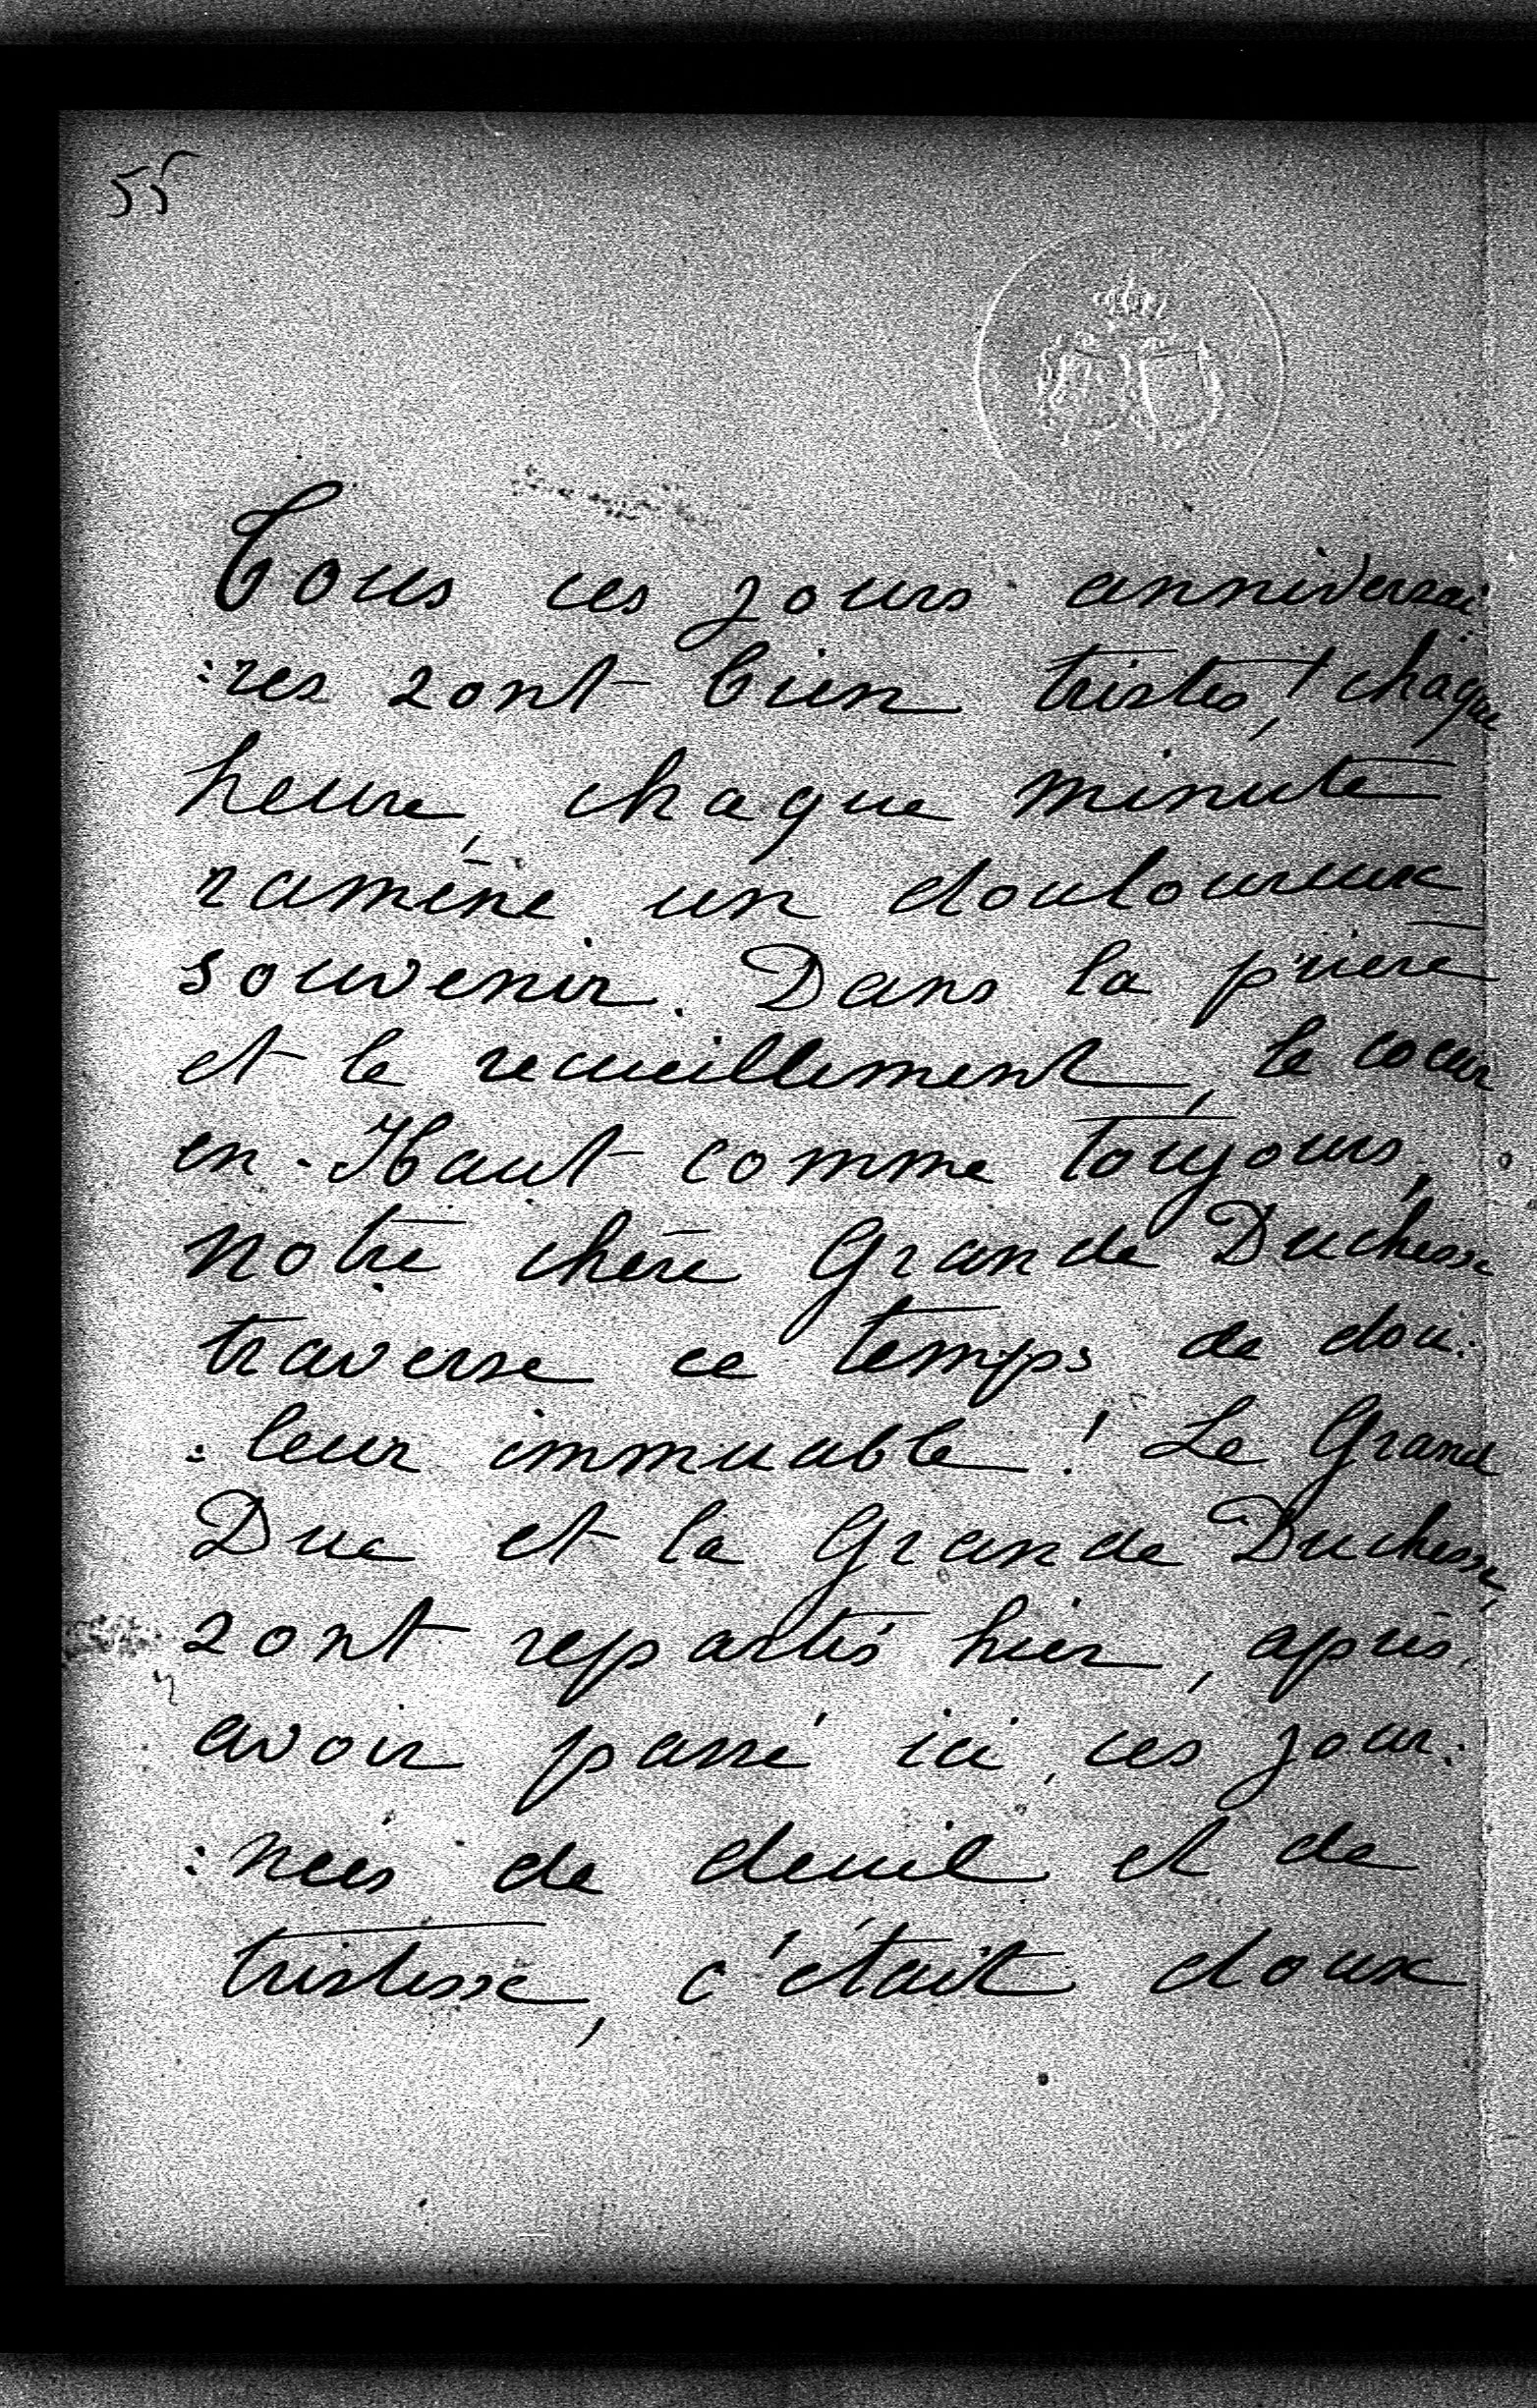 55
Tous ces jours anniversai
:res sont bien tristes, ! chaque
heure, chaque minute
ramène un douloureux
souvenir. Dans la prière
et le recueillement, le coeur
en-Haut comme toujours,
notre chère Grande Duchesse
traverse ce temps de dou:
:leur immuable ! Le Grand
Duc et la Grande Duchesse,
sont repartis hier, après,
avoir passé ici, ces jour:
:nées de deuil et de
tristesse, c'était doux